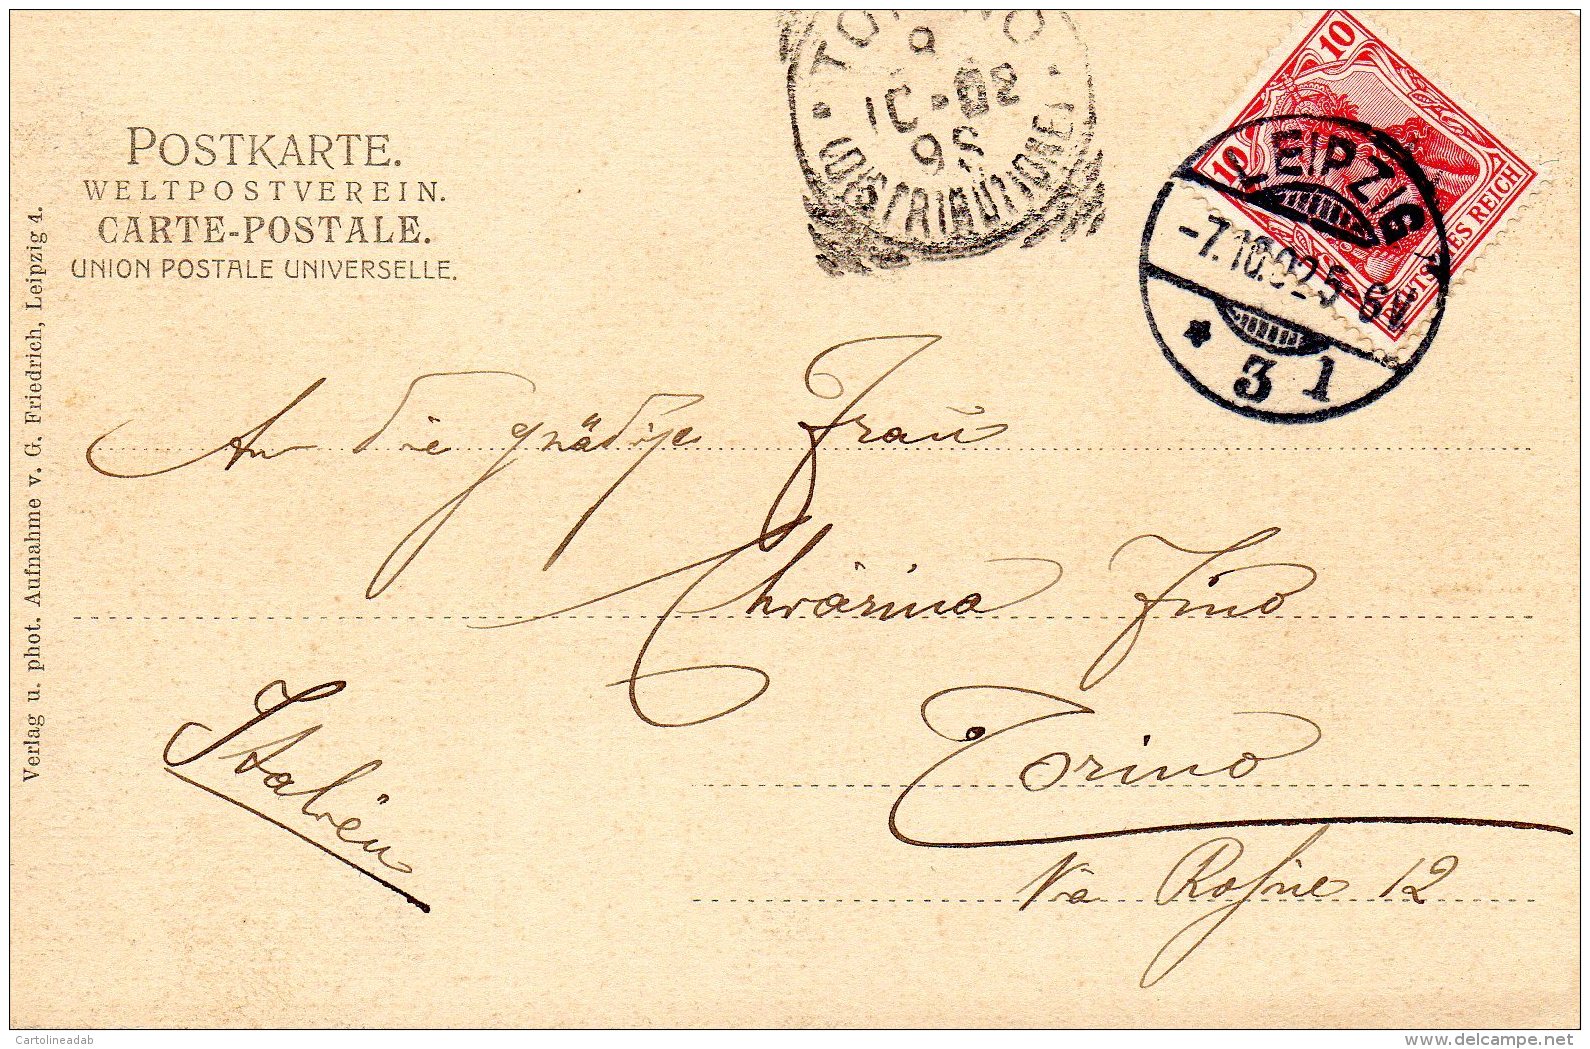 POSTKARTE.
WELTPOSTVEREIN.
CARTE-POSTALE.
UNION POSTALE UNIVERSELLE.
Verlag u. phot. Aufnahme v. G. Friedrich, Leipzig 4.
TORINO
9
10-02
9S
DISTRIBUZIONE
10
10
DEUTSCHES REICH
LEIPZIG
-7.10.02 5-6V.
* 3 1
An die gnädige Frau
Fino
Torino
Via Rosine 12
Italien
Cartolineadab
www.delcampe.net